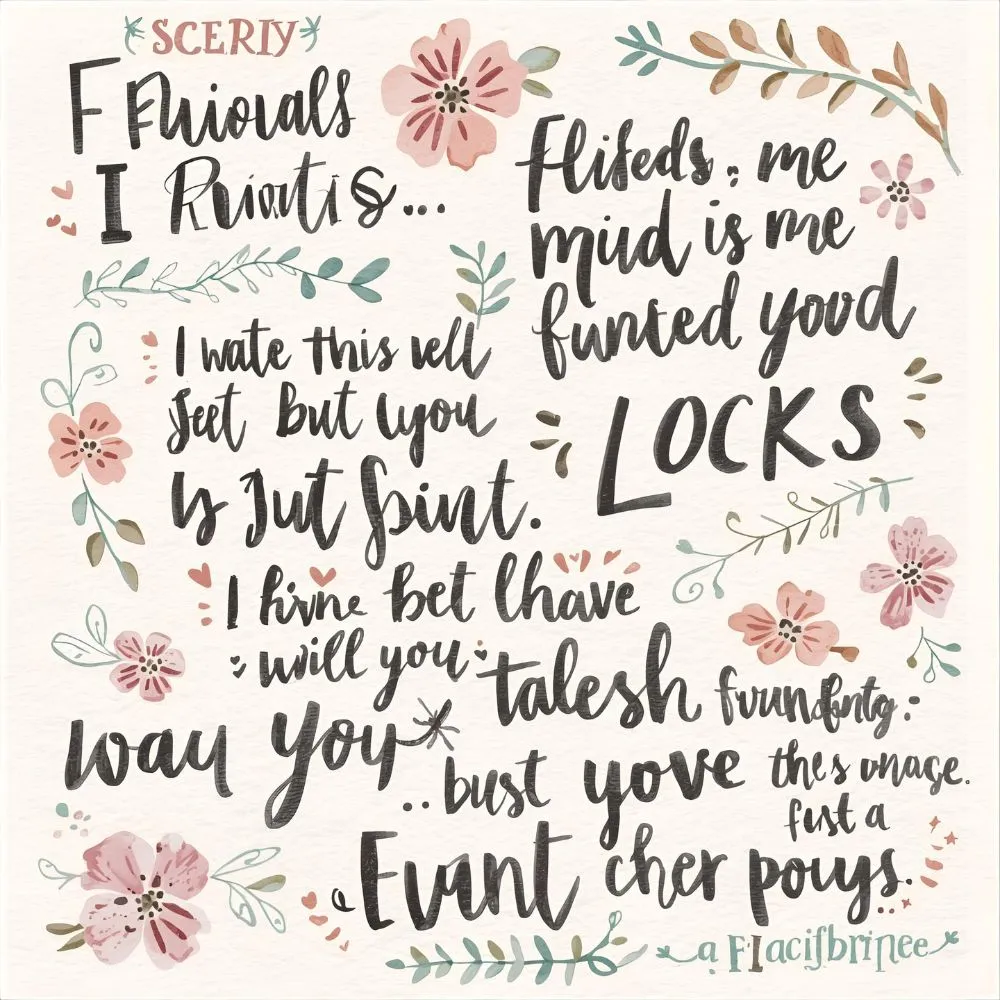 SCERIY
F FRuiovals
I Rviortis...
Flifeds: me
miud is me
funted yovd
LOCKS
I wate this vell
Jeet But lyou
is Jut Spint.
I hivne bet lhave
will you
talesh fvundbntg:-
woau you
..bust yove thes vnage.
fust a
Evant cher pouys.
a FIacifbrinee